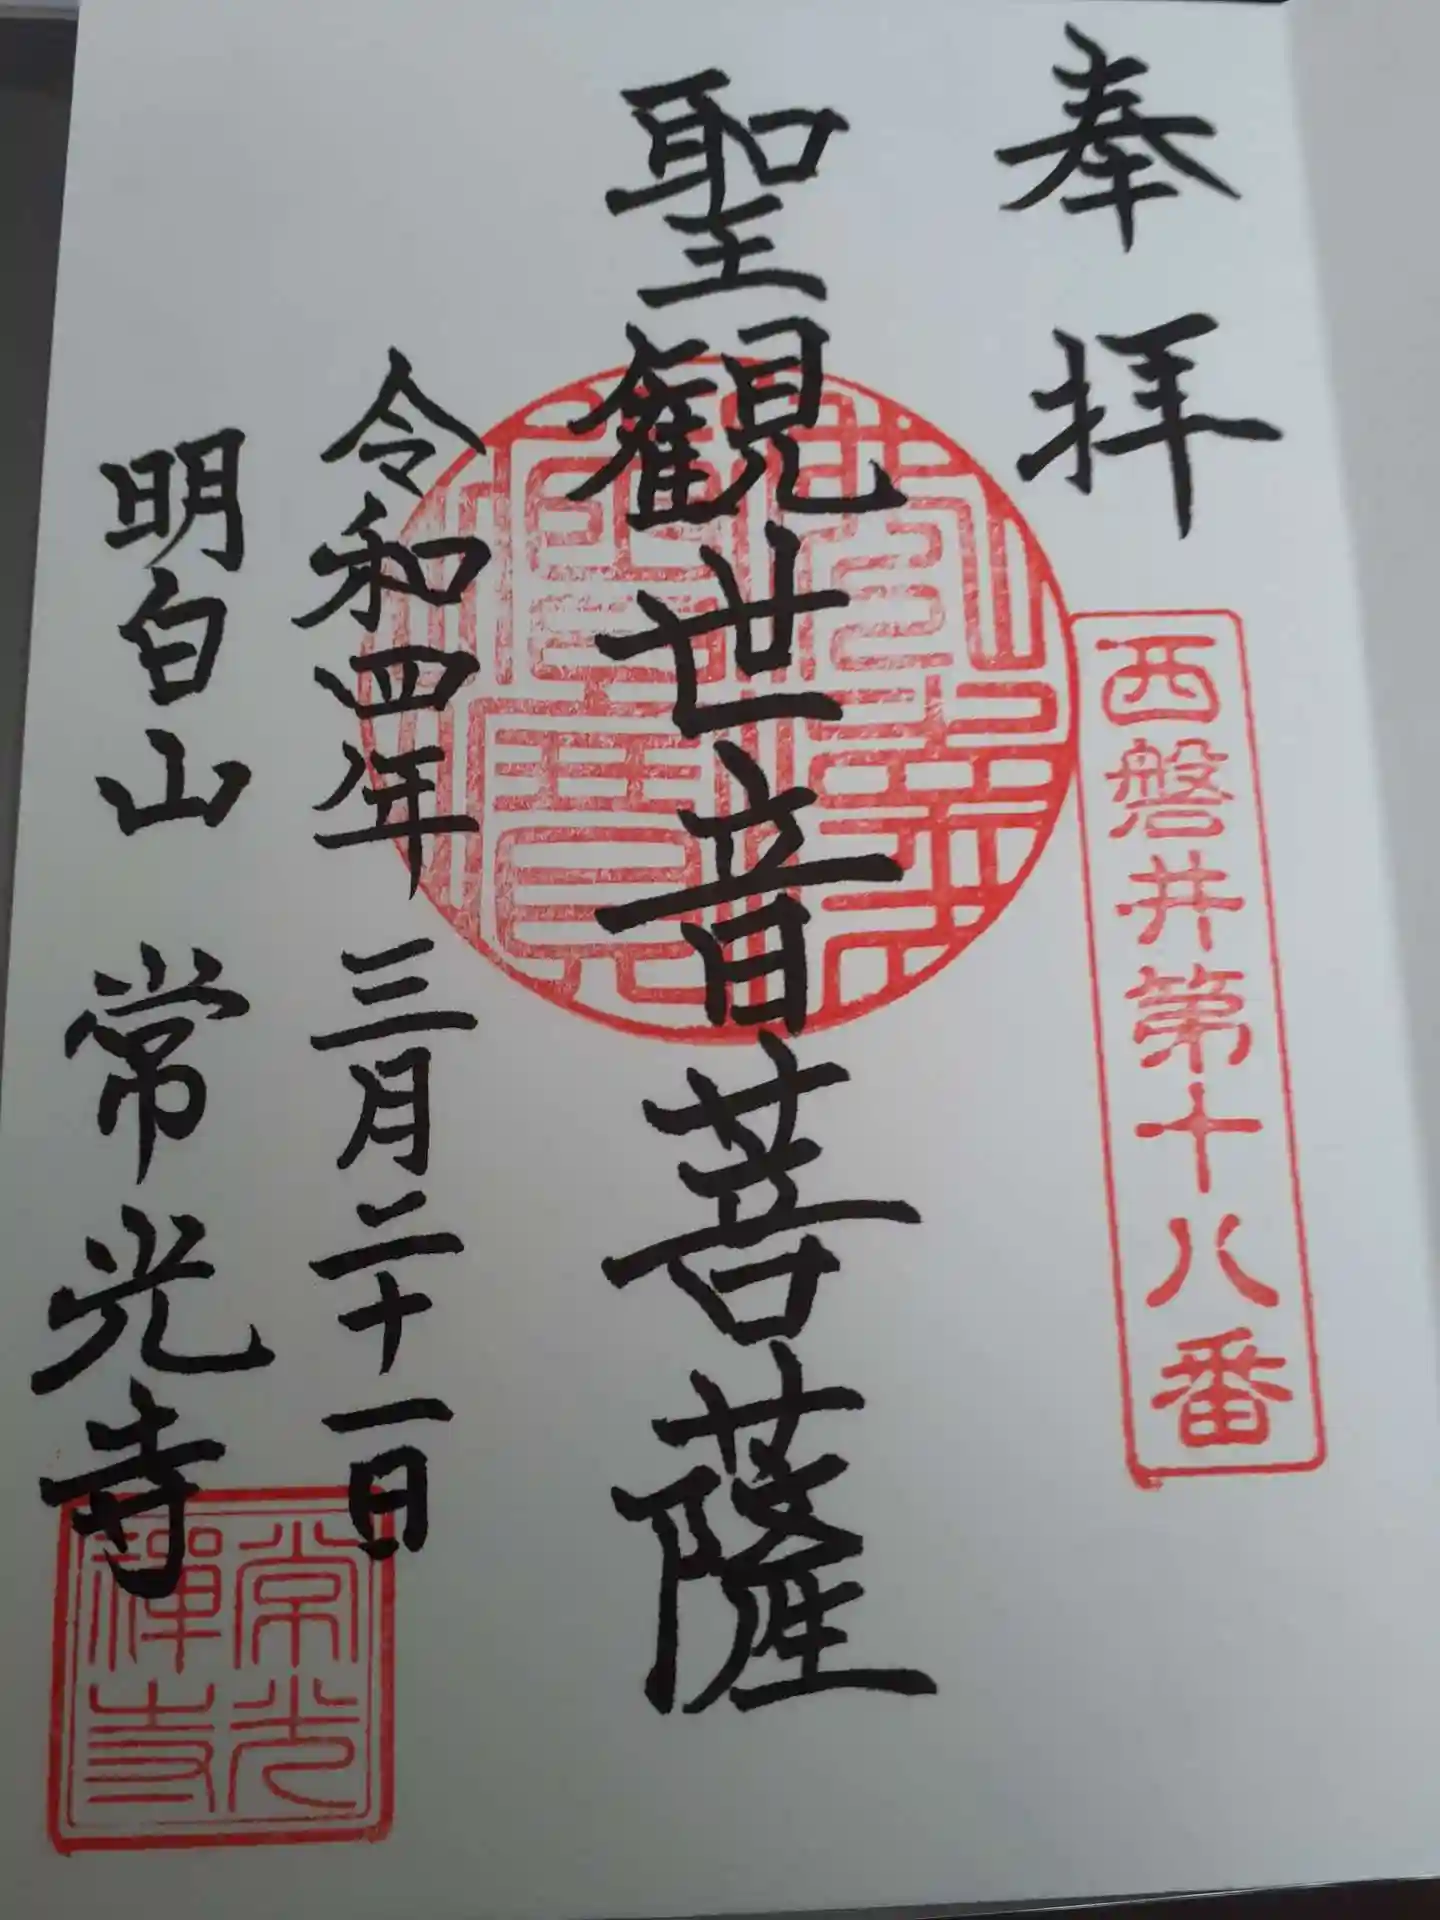 奉拝
西磐井第十八番
聖観世音菩薩
令和四年三月二十一日
明白山 常光寺
常光
禅寺